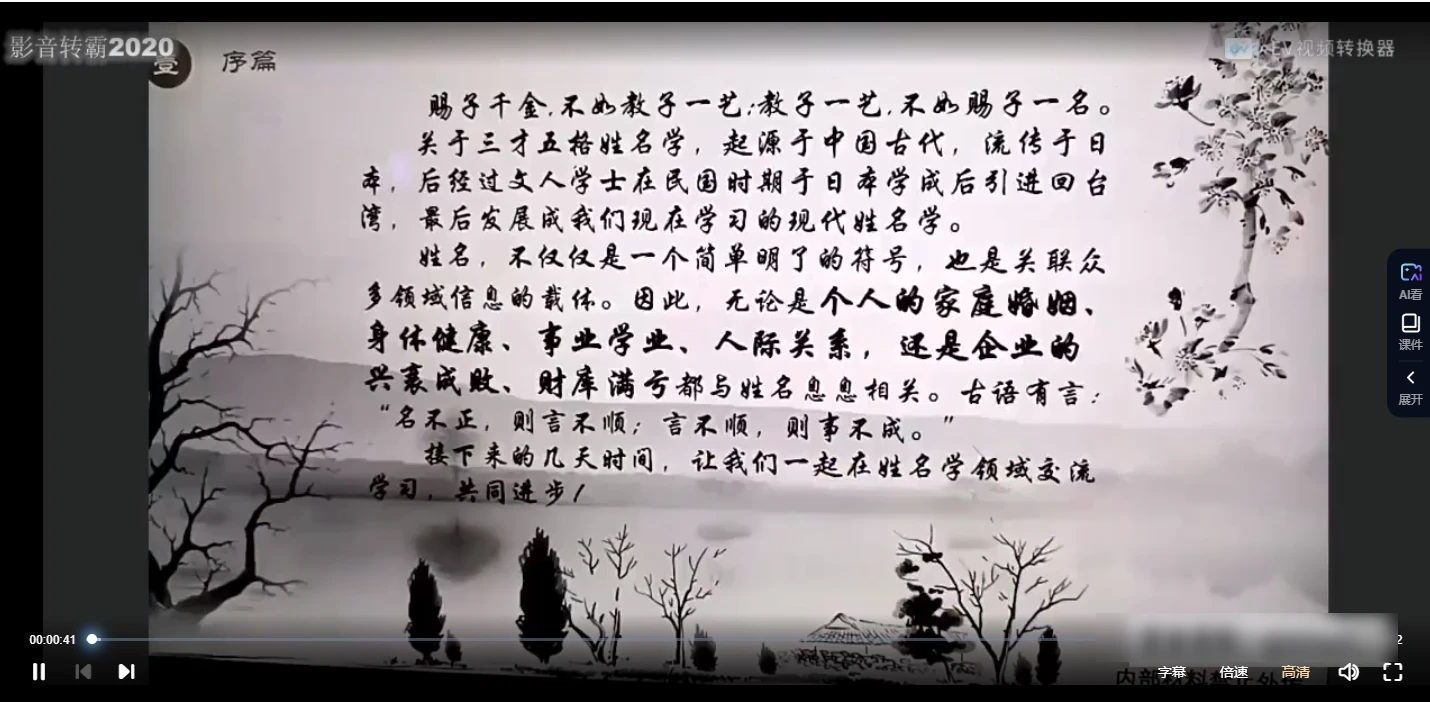 影音转霸2020
壹
序篇
EV视频转换器
赐子千金,不如教子一艺;教子一艺,不如赐子一名。
关于三才五格姓名学，起源于中国古代，流传于日
本，后经过文人学士在民国时期于日本学成后引进回台
湾，最后发展成我们现在学习的现代姓名学。
姓名，不仅仅是一个简单明了的符号，也是关联众
多领域信息的载体。因此，无论是个人的家庭婚姻、
身体健康、事业学业、人际关系，还是企业的
兴衰成败、财库满亏都与姓名息息相关。古语有言：
“名不正，则言不顺；言不顺，则事不成。”
接下来的几天时间，让我们一起在姓名学领域交流
学习，共同进步！
AI看
课件
展开
00:00:41
2
字幕
倍速
高清
内部材料禁止外传